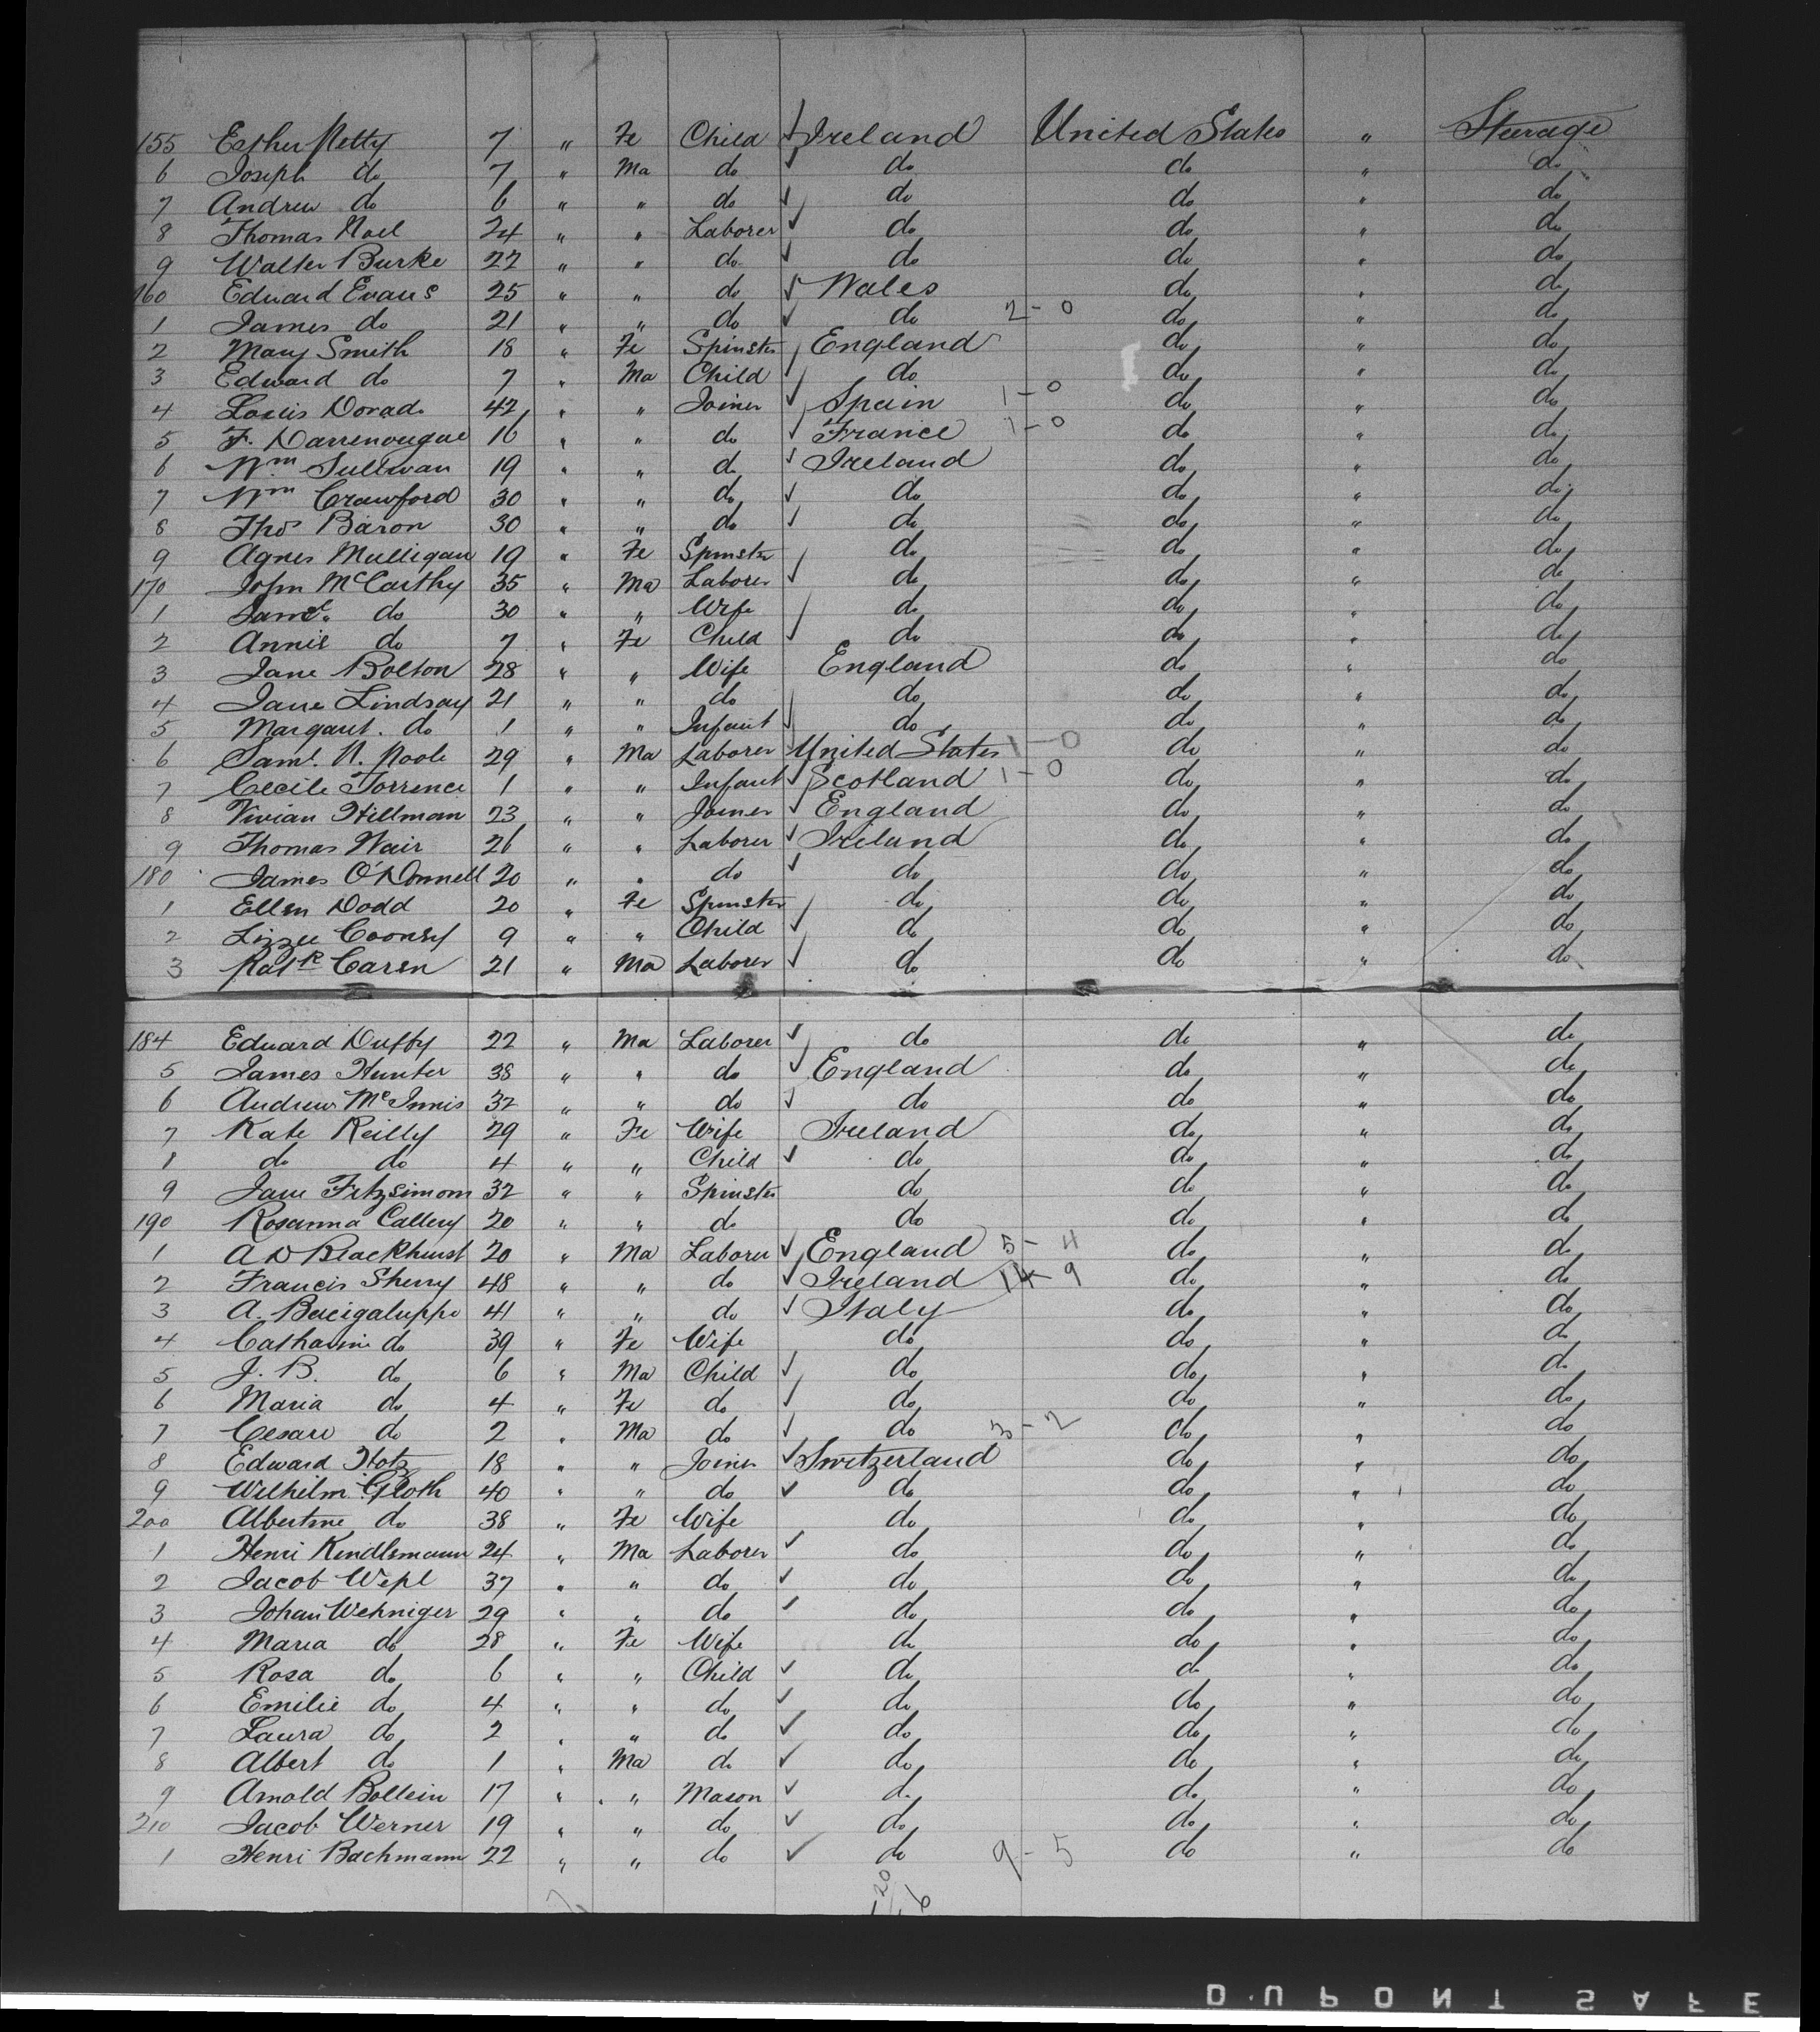 155 Esther Netty 7 " Fe Child ✓ Ireland United States " Steerage
6 Joseph do 7 " Ma do ✓ do do " do
7 Andrew do 6 " " do ✓ do do " do
8 Thomas Noel 24 " " Laborer ✓ do do " do
9 Walter Burke 22 " " do ✓ do do " do
160 Edward Evans 25 " " do ✓ Wales do " do
1 James do 21 " " do ✓ do 2-0 do " do
2 Mary Smith 18 " Fe Spinster England do " do
3 Edward do 7 " Ma Child ✓ do do " do
4 Louis Dorado 42 " " Joiner ✓ Spain 1-0 do " do
5 F. Darrenougue 16 " " do ✓ France 1-0 do " do
6 Wm Sullivan 19 " " do ✓ Ireland do " do
7 Wm Crawford 30 " " do ✓ do do " do
8 Thos Baron 30 " " do ✓ do do " do
9 Agnes Mulligan 19 " Fe Spinster do do " do
170 John McCarthy 35 " Ma Laborer ✓ do do " do
1 Saml. do 30 " " Wife do do " do
2 Annie do 7 " Fe Child ✓ do do " do
3 Jane Bolton 28 " " Wife England do " do
4 Jane Lindsay 21 " " do do do " do
5 Margaret. do 1 " " Infant ✓ do do " do
6 Saml. N. Poole 29 " Ma Laborer United States 1-0 do " do
7 Cecile Torrence 1 " " Infant ✓ Scotland 1-0 do " do
8 Vivian Hillman 23 " " Joiner ✓ England do " do
9 Thomas Wair 26 " " Laborer ✓ Ireland do " do
180 James O'Donnell 20 " " do ✓ do do " do
1 Ellen Dodd 20 " Fe Spinster do do " do
2 Lizzie Cooney 9 " " Child ✓ do do " do
3 Patk Caren 21 " Ma Laborer ✓ do do " do
184 Edward Duffy 22 " Ma Laborer ✓ do do " do
5 James Hunter 38 " " do ✓ England do " do
6 Andrew McInnis 32 " " do ✓ do do " do
7 Kate Reilly 29 " Fe Wife Ireland do " do
8 do do 4 " " Child ✓ do do " do
9 Jane Fitzsimom 32 " " Spinster do do " do
190 Rosanna Callery 20 " " do do do " do
1 A D Blackhurst 20 " Ma Laborer ✓ England 5-4 do " do
2 Francis Sherry 48 " " do ✓ Ireland 14-9 do " do
3 A. Bacigaluppo 41 " " do ✓ Italy do " do
4 Catharine do 39 " Fe Wife do do " do
5 J. B. do 6 " Ma Child ✓ do do " do
6 Maria do 4 " Fe do ✓ do do " do
7 Cesare do 2 " Ma do ✓ do 3-2 do " do
8 Edward Hotz 18 " " Joiner ✓ Switzerland do " do
9 Wilhilm Gloth 40 " " do ✓ do do " do
200 Albertine do 38 " Fe Wife do do " do
1 Henri Kendlemann 24 " Ma Laborer ✓ do do " do
2 Jacob Wepl 37 " " do ✓ do do " do
3 Johan Wehniger 29 " " do ✓ do do " do
4 Maria do 28 " Fe Wife do do " do
5 Rosa do 6 " " Child ✓ do do " do
6 Emilie do 4 " " do ✓ do do " do
7 Laura do 2 " " do ✓ do do " do
8 Albert do 1 " Ma do ✓ do do " do
9 Arnold Bollein 17 " " Mason ✓ do do " do
210 Jacob Werner 19 " " do ✓ do do " do
1 Henri Bachmann 22 " " do ✓ do 9-5 do " do
DUPONT SAFE